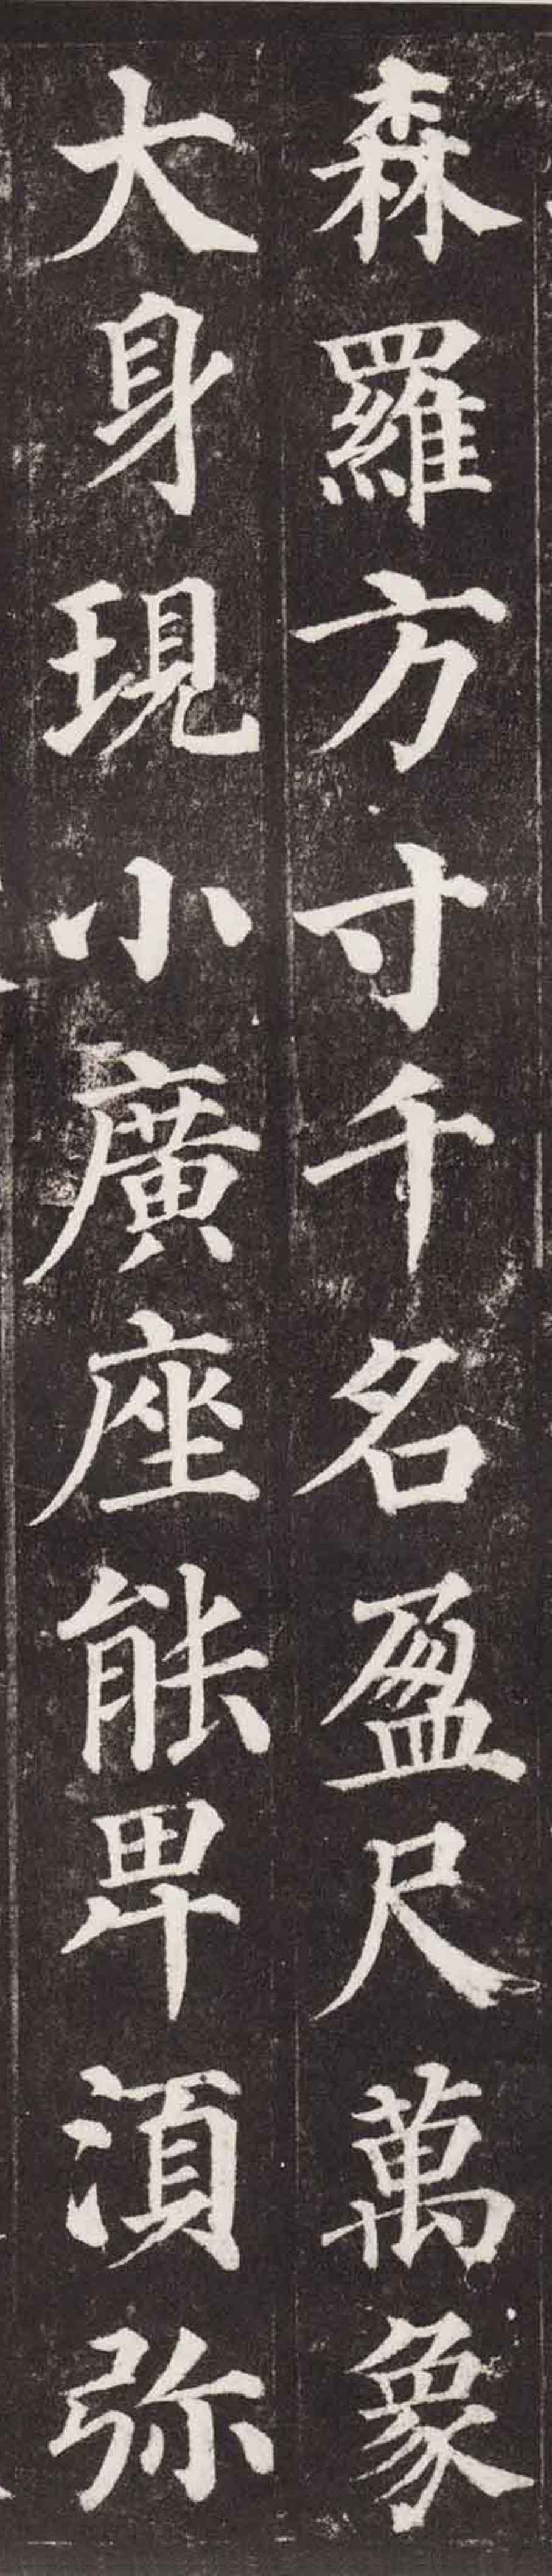 森羅方寸千名盈尺萬象
大身現小廣座能卑湏弥